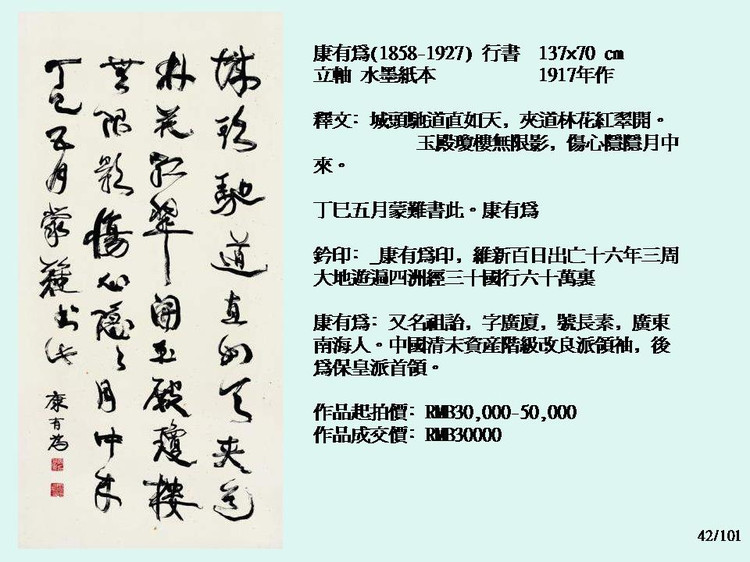 城頭馳道直如天夾道
林花紅翠開玉殿瓊樓
無限影傷心隱隱月中來
丁巳五月蒙難書此
康有為
康有為(1858-1927) 行書 137x70 cm
立軸 水墨紙本 1917年作
釋文: 城頭馳道直如天, 夾道林花紅翠開。
玉殿瓊樓無限影, 傷心隱隱月中
來。
丁巳五月蒙難書此。康有為
鈐印: _康有為印, 維新百日出亡十六年三周
大地遊遍四洲經三十國行六十萬裏
康有為: 又名祖詒, 字廣廈, 號長素, 廣東
南海人。中國清末資產階級改良派領袖, 後
為保皇派首領。
作品起拍價: RMB30,000-50,000
作品成交價: RMB30000
42/101